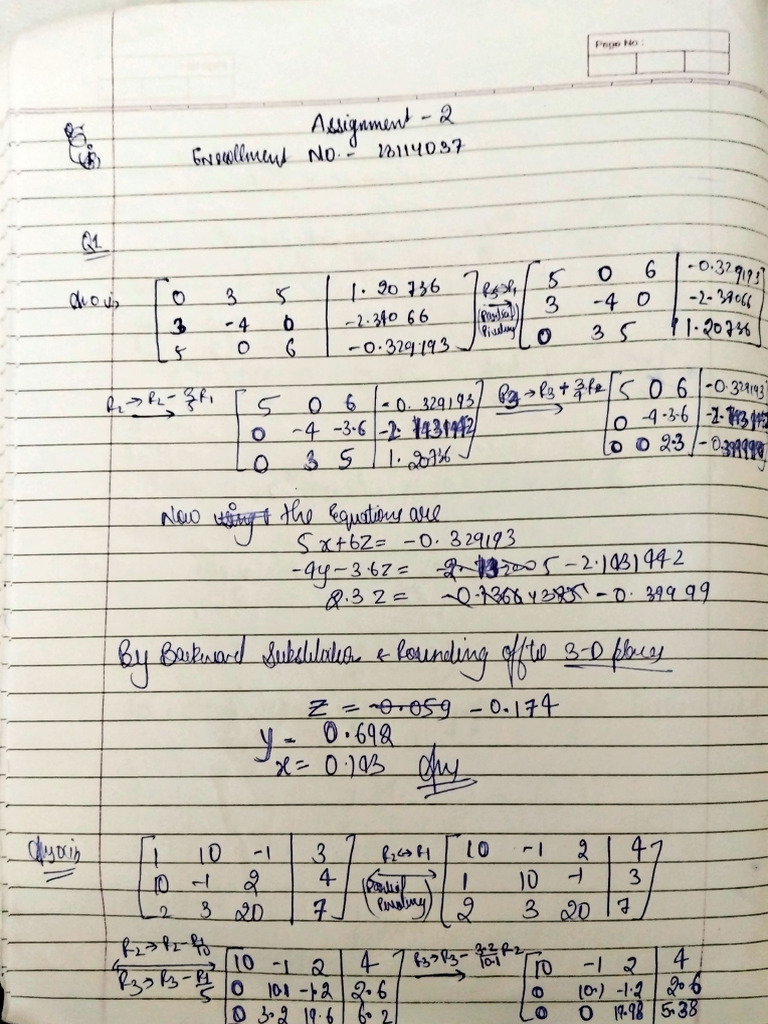 Page No :
Assignment - 2
Enrollment NO. - 23114037
Q1
0 3 5 | 1.20736
3 -4 0 | -2.34066
5 0 6 | -0.329193
R3→R1
(Partial Pivoting)
5 0 6 | -0.329193
3 -4 0 | -2.34066
0 3 5 | 1.20736
R2→R2 - 3/5 R1
5 0 6 | -0.329193
0 -4 -3.6
0 3 5 | 1.20736
R3→R3 + 3/4 R2
5 0 6 | -0.329193
0 -4 -3.6
0 0 2.3
Now the Equations are
5x+6z = -0.329193
-4y-3.6z = -2.1431442
2.3z = -0.39999
By Backward Substitution & Rounding off to 3-D places
z = -0.059 -0.174
y = 0.692
x = 0.143 Ans
1 10 -1 | 3
10 -1 2 | 4
2 3 20 | 7
R2↔R1
(Partial Pivoting)
10 -1 2 | 4
1 10 -1 | 3
2 3 20 | 7
R2→R2 - R1/10
R3→R3 - R1/5
10 -1 2 | 4
0 10.1 -1.2 | 2.6
0 3.2 19.6 | 6.2
R3→R3 - 3.2/10.1 R2
10 -1 2 | 4
0 10.1 -1.2 | 2.6
0 0 19.98 | 5.38